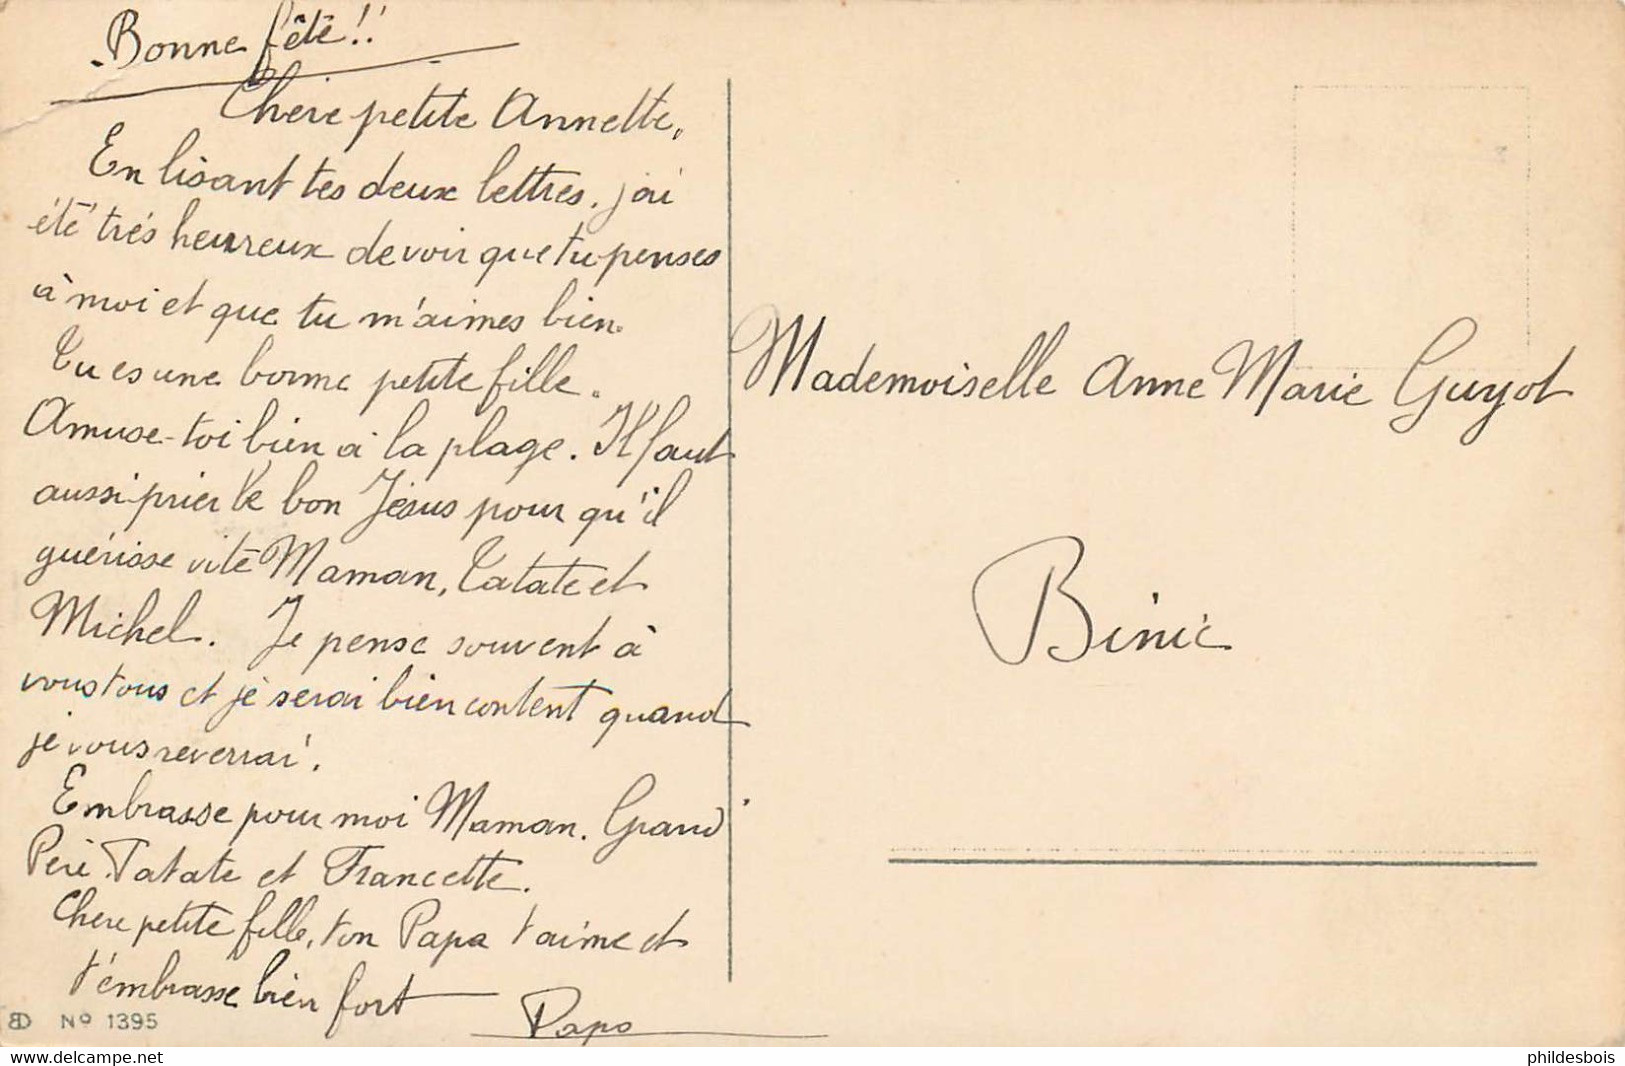 Bonne fête!!
Chere petite Annette,
En lisant tes deux lettres, j'ai
été trés heureux de voir que tu penses
à moi et que tu m'aimes bien.
Tu es une bonne petite fille.
Amuse-toi bien à la plage. Il faut
aussi prier le bon Jésus pour qu'il
guérisse vite Maman, Tatate et
Michel. Je pense souvent à
vous tous et je serai bien content quand
je vous reverrai.
Embrasse pour moi Maman. Grand
Père. Tatate et Francette.
Chere petite fille, ton Papa t'aime et
t'embrasse bien fort
Papa
Mademoiselle Anne Marie Guyot
Binic
BD No 1395
www.delcampe.net
phildesbois